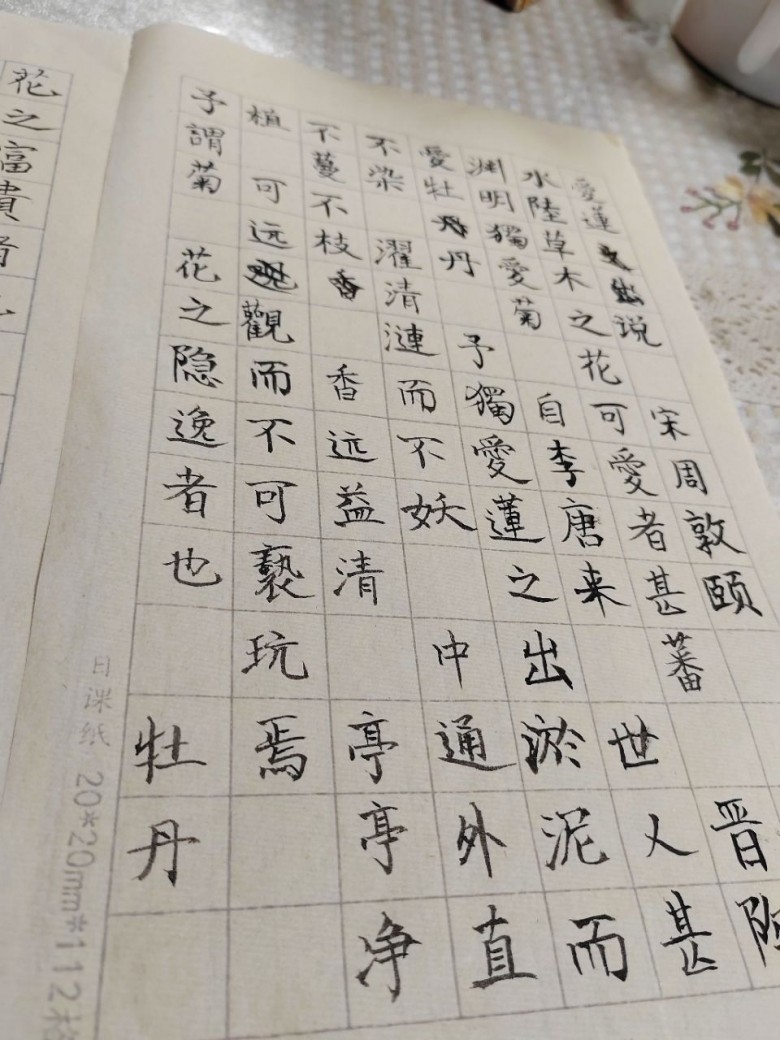 愛蓮说 宋周敦颐
水陸草木之花可愛者甚蕃 晋
渊明獨愛菊 自李唐来 世人甚
愛牡丹 予獨愛蓮之出淤泥而
不染 濯清漣而不妖 中通外直
不蔓不枝 香远益清 亭亭净
植 可远觀而不可褻玩焉
予謂菊 花之隐逸者也 牡丹
花之富貴者
日课纸 20*20mm*112格